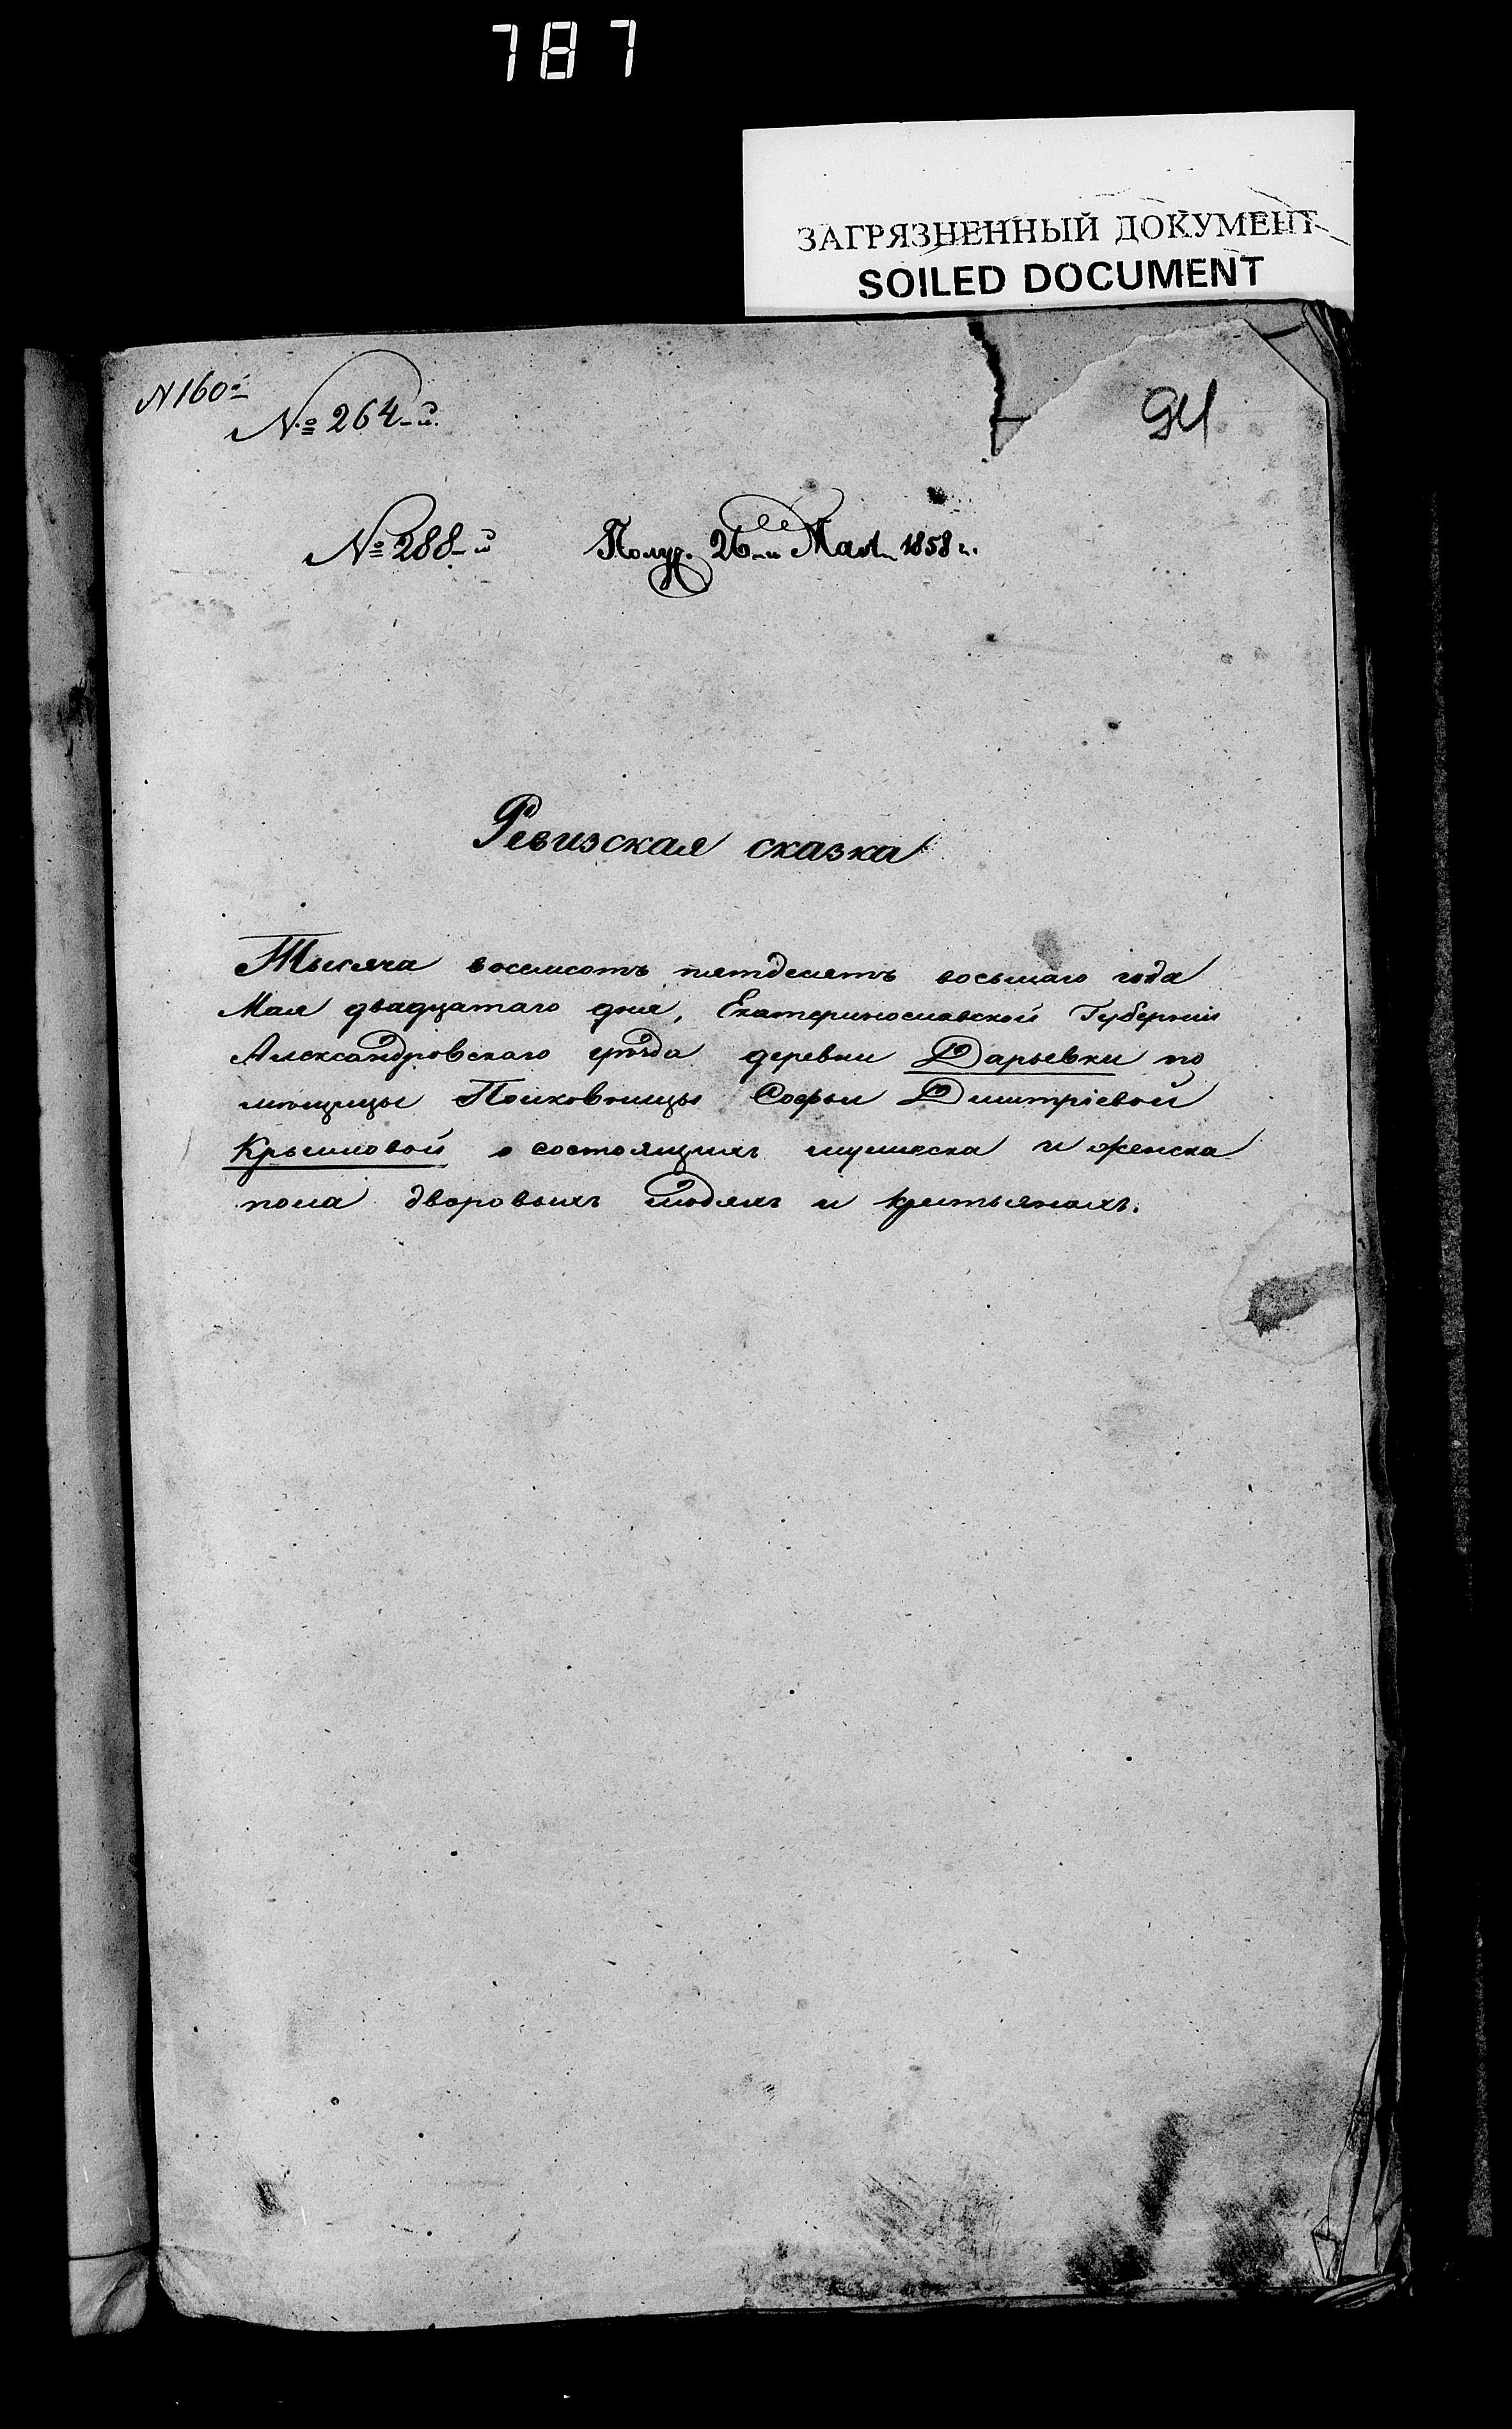 787
ЗАГРЯЗНЕННЫЙ ДОКУМЕНТ
SOILED DOCUMENT
N160й
№264-й.
94
№288-й Получ. 26-го Мая 1858 г.
Ревизская сказка
Тысяча восемсотъ пятдесятъ восьмаго года
Мая двадцатаго дня, Екатеринославской Губерніи
Александровскаго уѣзда деревни Дарьевки по
мѣщицы Полковницы Софьи Димитріевой
Крыловой о состоящихъ мужеска и женска
пола дворовыхъ людяхъ и крестьянахъ.